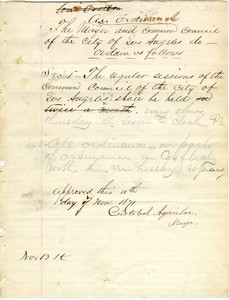 An Ordinance
The Mayor and Common Council
of the City of Los Angeles do
Ordain as follows
Sec 1st The regular sessions of the
Common Council of the City of
Los Angeles shall be held on
twice a month. every other
Thursday at seven o'clock P.
All ordinances or parts
of ordinances in conflict
with this are hereby repealed
Approved this 11th
day of Nov 1871
Cristobal Aguilar
Mayor
Nov 13